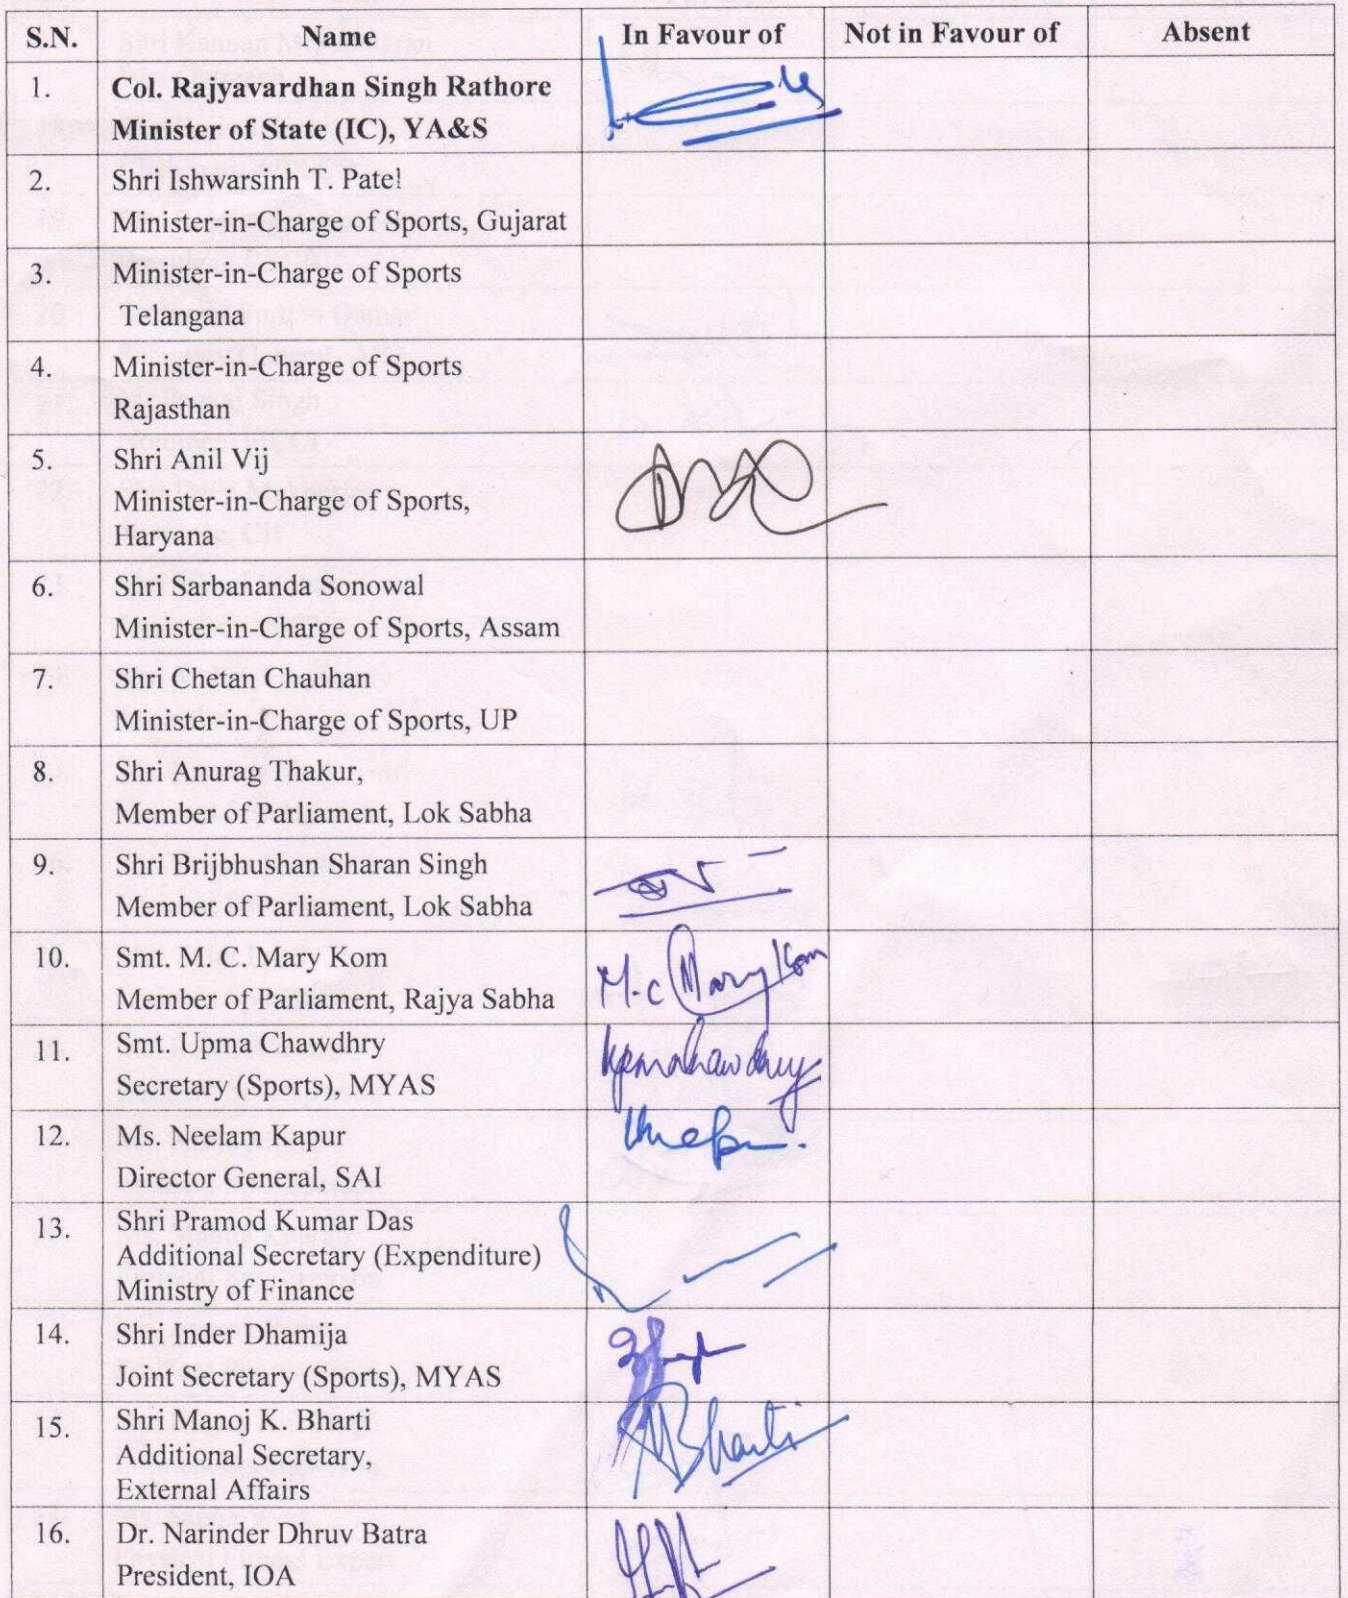 S.N. Name In Favour of Not in Favour of Absent
1. Col. Rajyavardhan Singh Rathore
Minister of State (IC), YA&S
2. Shri Ishwarsinh T. Patel
Minister-in-Charge of Sports, Gujarat
3. Minister-in-Charge of Sports
Telangana
4. Minister-in-Charge of Sports
Rajasthan
5. Shri Anil Vij
Minister-in-Charge of Sports,
Haryana
6. Shri Sarbananda Sonowal
Minister-in-Charge of Sports, Assam
7. Shri Chetan Chauhan
Minister-in-Charge of Sports, UP
8. Shri Anurag Thakur,
Member of Parliament, Lok Sabha
9. Shri Brijbhushan Sharan Singh
Member of Parliament, Lok Sabha
10. Smt. M. C. Mary Kom M.C Mary Kom
Member of Parliament, Rajya Sabha
11. Smt. Upma Chawdhry
Secretary (Sports), MYAS
12. Ms. Neelam Kapur
Director General, SAI
13. Shri Pramod Kumar Das
Additional Secretary (Expenditure)
Ministry of Finance
14. Shri Inder Dhamija
Joint Secretary (Sports), MYAS
15. Shri Manoj K. Bharti Bharti
Additional Secretary,
External Affairs
16. Dr. Narinder Dhruv Batra
President, IOA